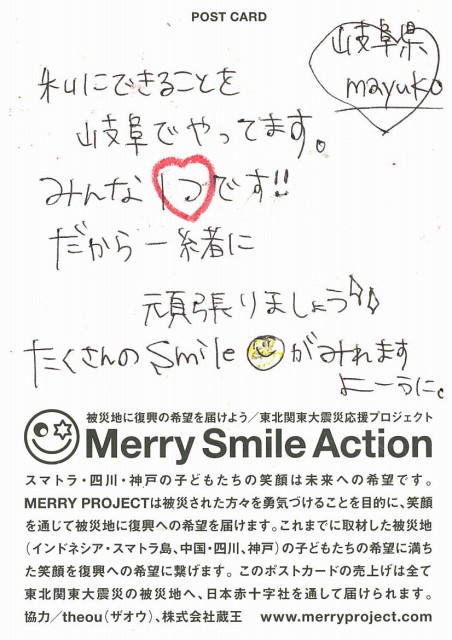 POST CARD
岐阜県
mayuko
私にできることを
岐阜でやってます。
みんな1つです!!
だから一緒に
頑張りましょう♪♪
たくさんのSmileがみれます
よーうに。
被災地に復興の希望を届けよう/東北関東大震災応援プロジェクト
Merry Smile Action
スマトラ・四川・神戸の子どもたちの笑顔は未来への希望です。
MERRY PROJECTは被災された方々を勇気づけることを目的に、笑顔
を通じて被災地に復興への希望を届けます。これまでに取材した被災地
(インドネシア・スマトラ島、中国・四川、神戸)の子どもたちの希望に満ち
た笑顔を復興への希望に繋げます。このポストカードの売上げは全て
東北関東大震災の被災地へ、日本赤十字社を通して届けられます。
協力/theou(ザオウ)、株式会社蔵王 www.merryproject.com